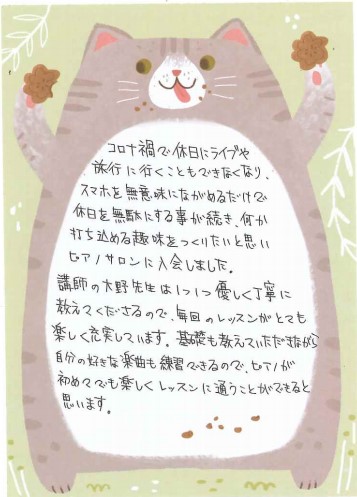 コロナ禍で休日にライブや
旅行に行くこともできなくなり、
スマホを無意味にながめるだけで
休日を無駄にする事が続き、何か
打ち込める趣味をつくりたいと思い
ピアノサロンに入会しました。
講師の大野先生は1つ1つ優しく丁寧に
教えてくださるので、毎回のレッスンがとても
楽しく充実しています。基礎も教えていただきながら
自分の好きな楽曲も練習できるので、ピアノが
初めてでも楽しくレッスンに通うことができると
思います。